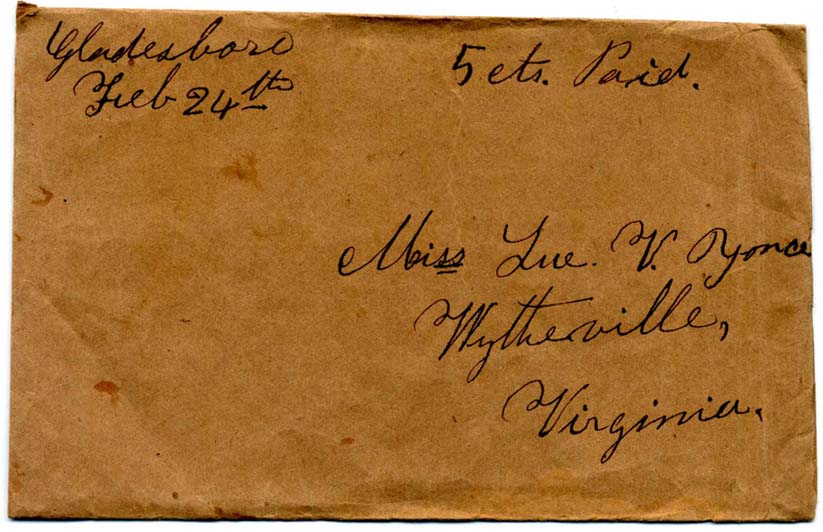 Gladesboro
Feb 24th
5 cts. Paid.
Miss Lue. V. Yonce
Wytheville,
Virginia.